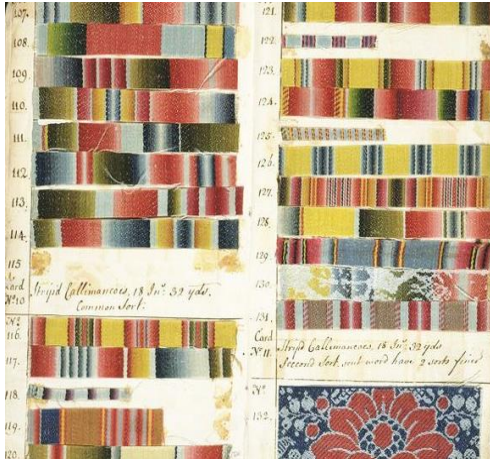 107.
108.
109.
110.
111.
112.
113.
114.
115
Card
Nº 10
Strip'd Callimancoes, 18 Inˢ. 32 yds.
Common Sort.
Nº
116.
117.
118
119.
120.
121.
122.
123.
124.
125.
126.
127.
128.
129.
130.
131.
Card
Nº 11.
Strip'd Callimancoes, 18 Inˢ. 32 yds
Second Sort, sent word have 2 sorts finer
Nº
132.